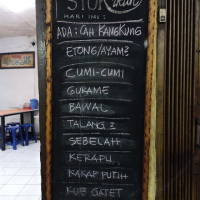 STOK ikan
HARI INI :
ADA : CAH KANGKUNG
ETONG/AYAM²
CUMI-CUMI
GURAME
BAWAL
TALANG²
SEBELAH
KERAPU
KAKAP PUTIH
KUE GATET